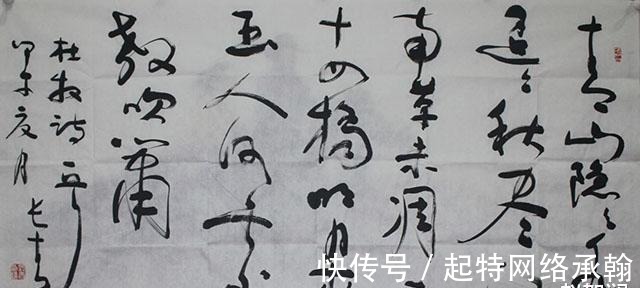 青山隐〻水
迢〻秋尽
南草未凋
十四桥明月
玉人何处
教吹箫
杜牧诗
甲午夏月
快传号 / 起特网络承翰